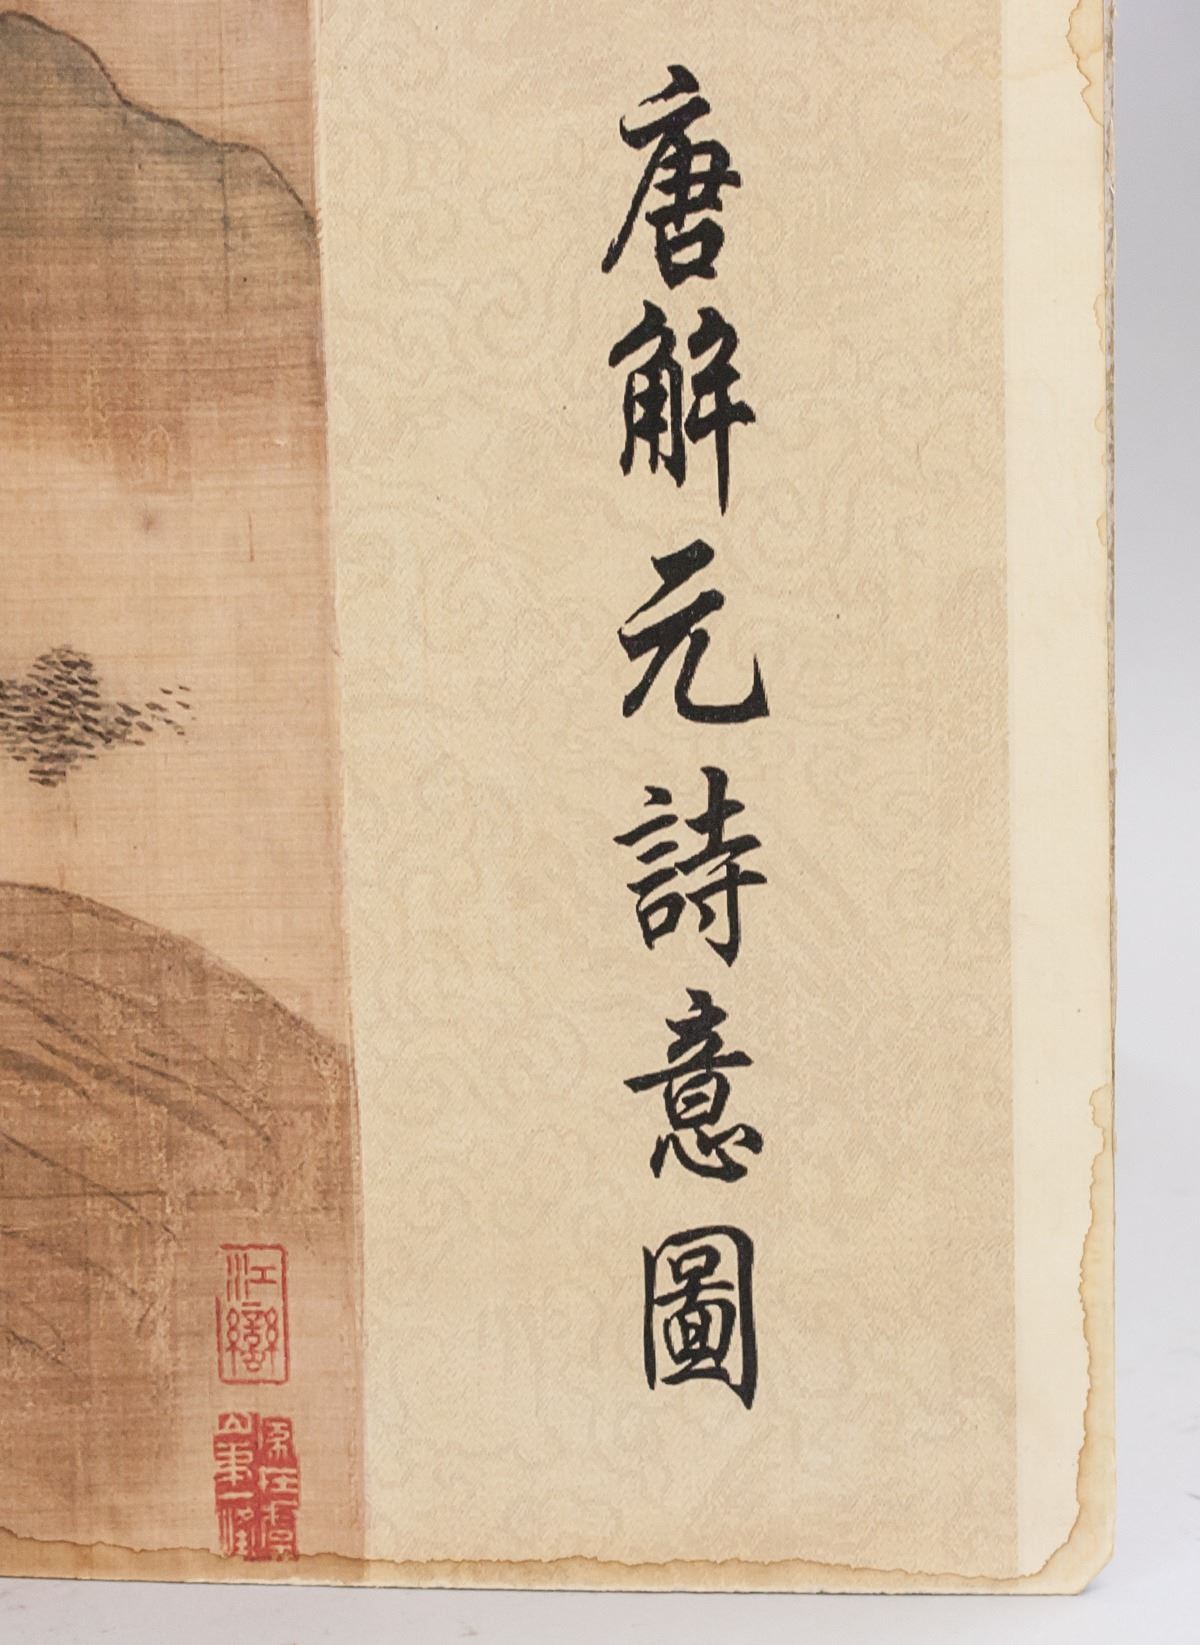 唐解元詩意圖
江巒